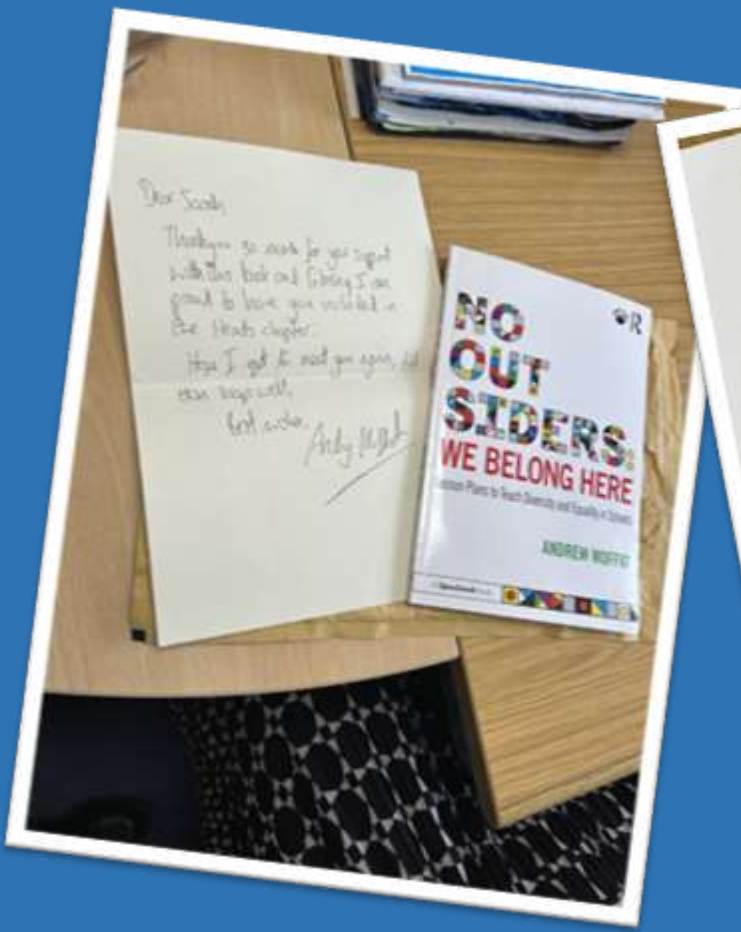 Dear Sarah,
Thankyou so much for your support
with this book and I am
proud to have you included in
the Heads chapter.
Hope I get to meet you again,
Best wishes,
Andy Moffat
NO
OUT
SIDERS:
WE BELONG HERE
Lesson Plans to Teach Diversity and Equality in Schools
ANDREW MOFFAT